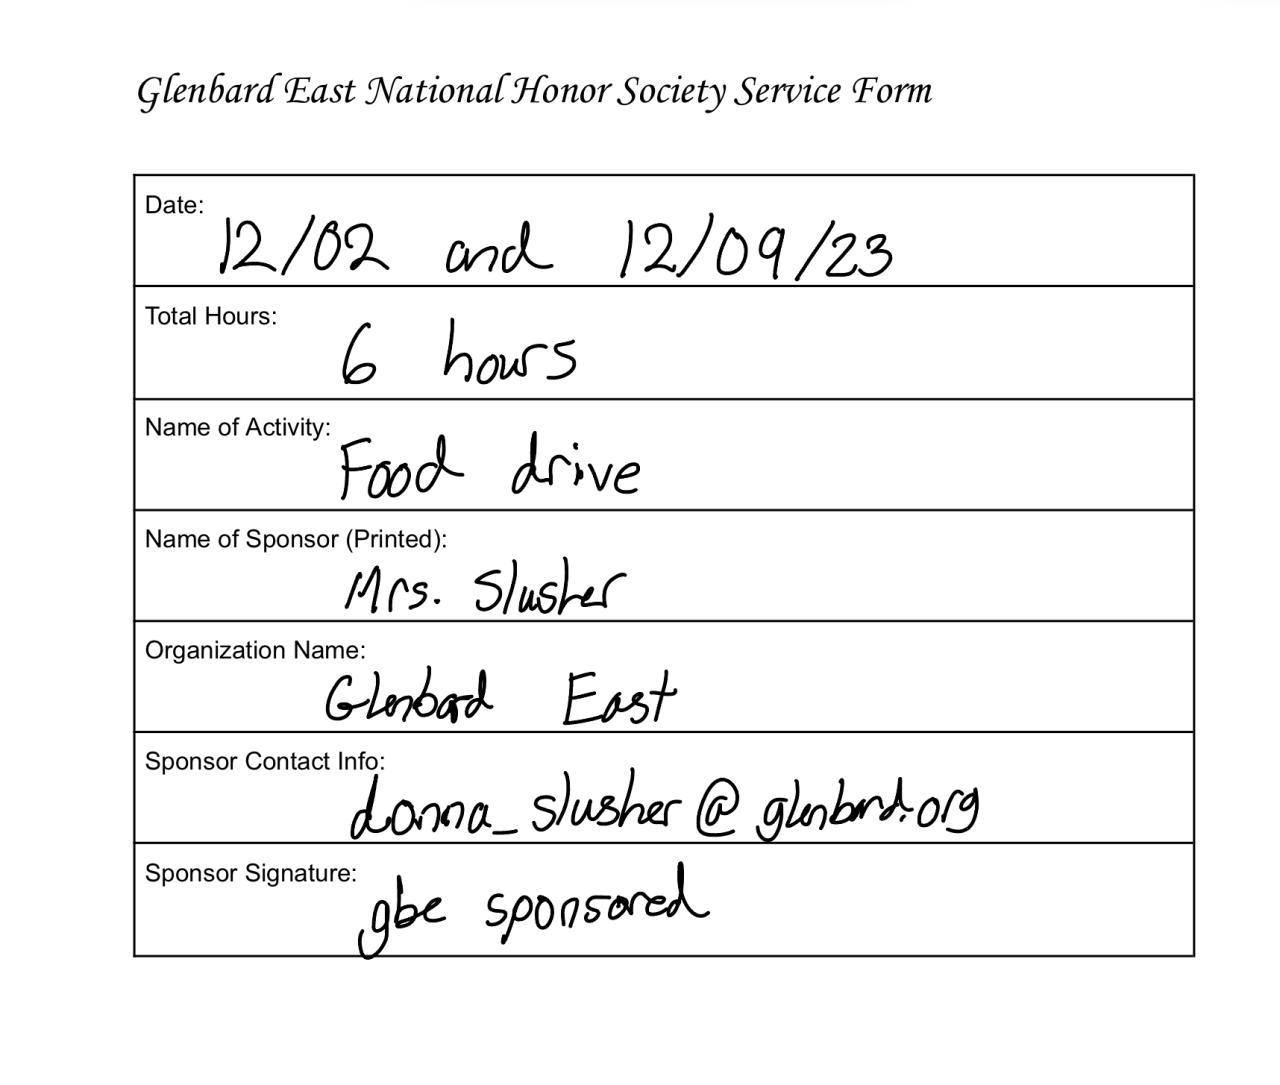 Glenbard East National Honor Society Service Form
Date:
12/02 and 12/09/23
Total Hours:
6 hours
Name of Activity:
Food drive
Name of Sponsor (Printed):
Mrs. Slusher
Organization Name:
Glenbard East
Sponsor Contact Info:
donna_slusher@glenbard.org
Sponsor Signature:
gbe sponsored